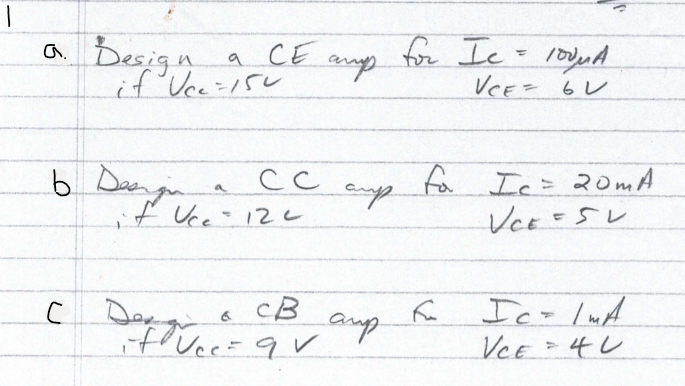 1
a. Design a CE amp for Ic = 100μA
if Vcc = 15V VCE = 6V
b Design a CC amp for Ic = 20mA
if Vcc = 12V VCE = 5V
c Design a CB amp for Ic = 1mA
if Vcc = 9V VCE = 4V